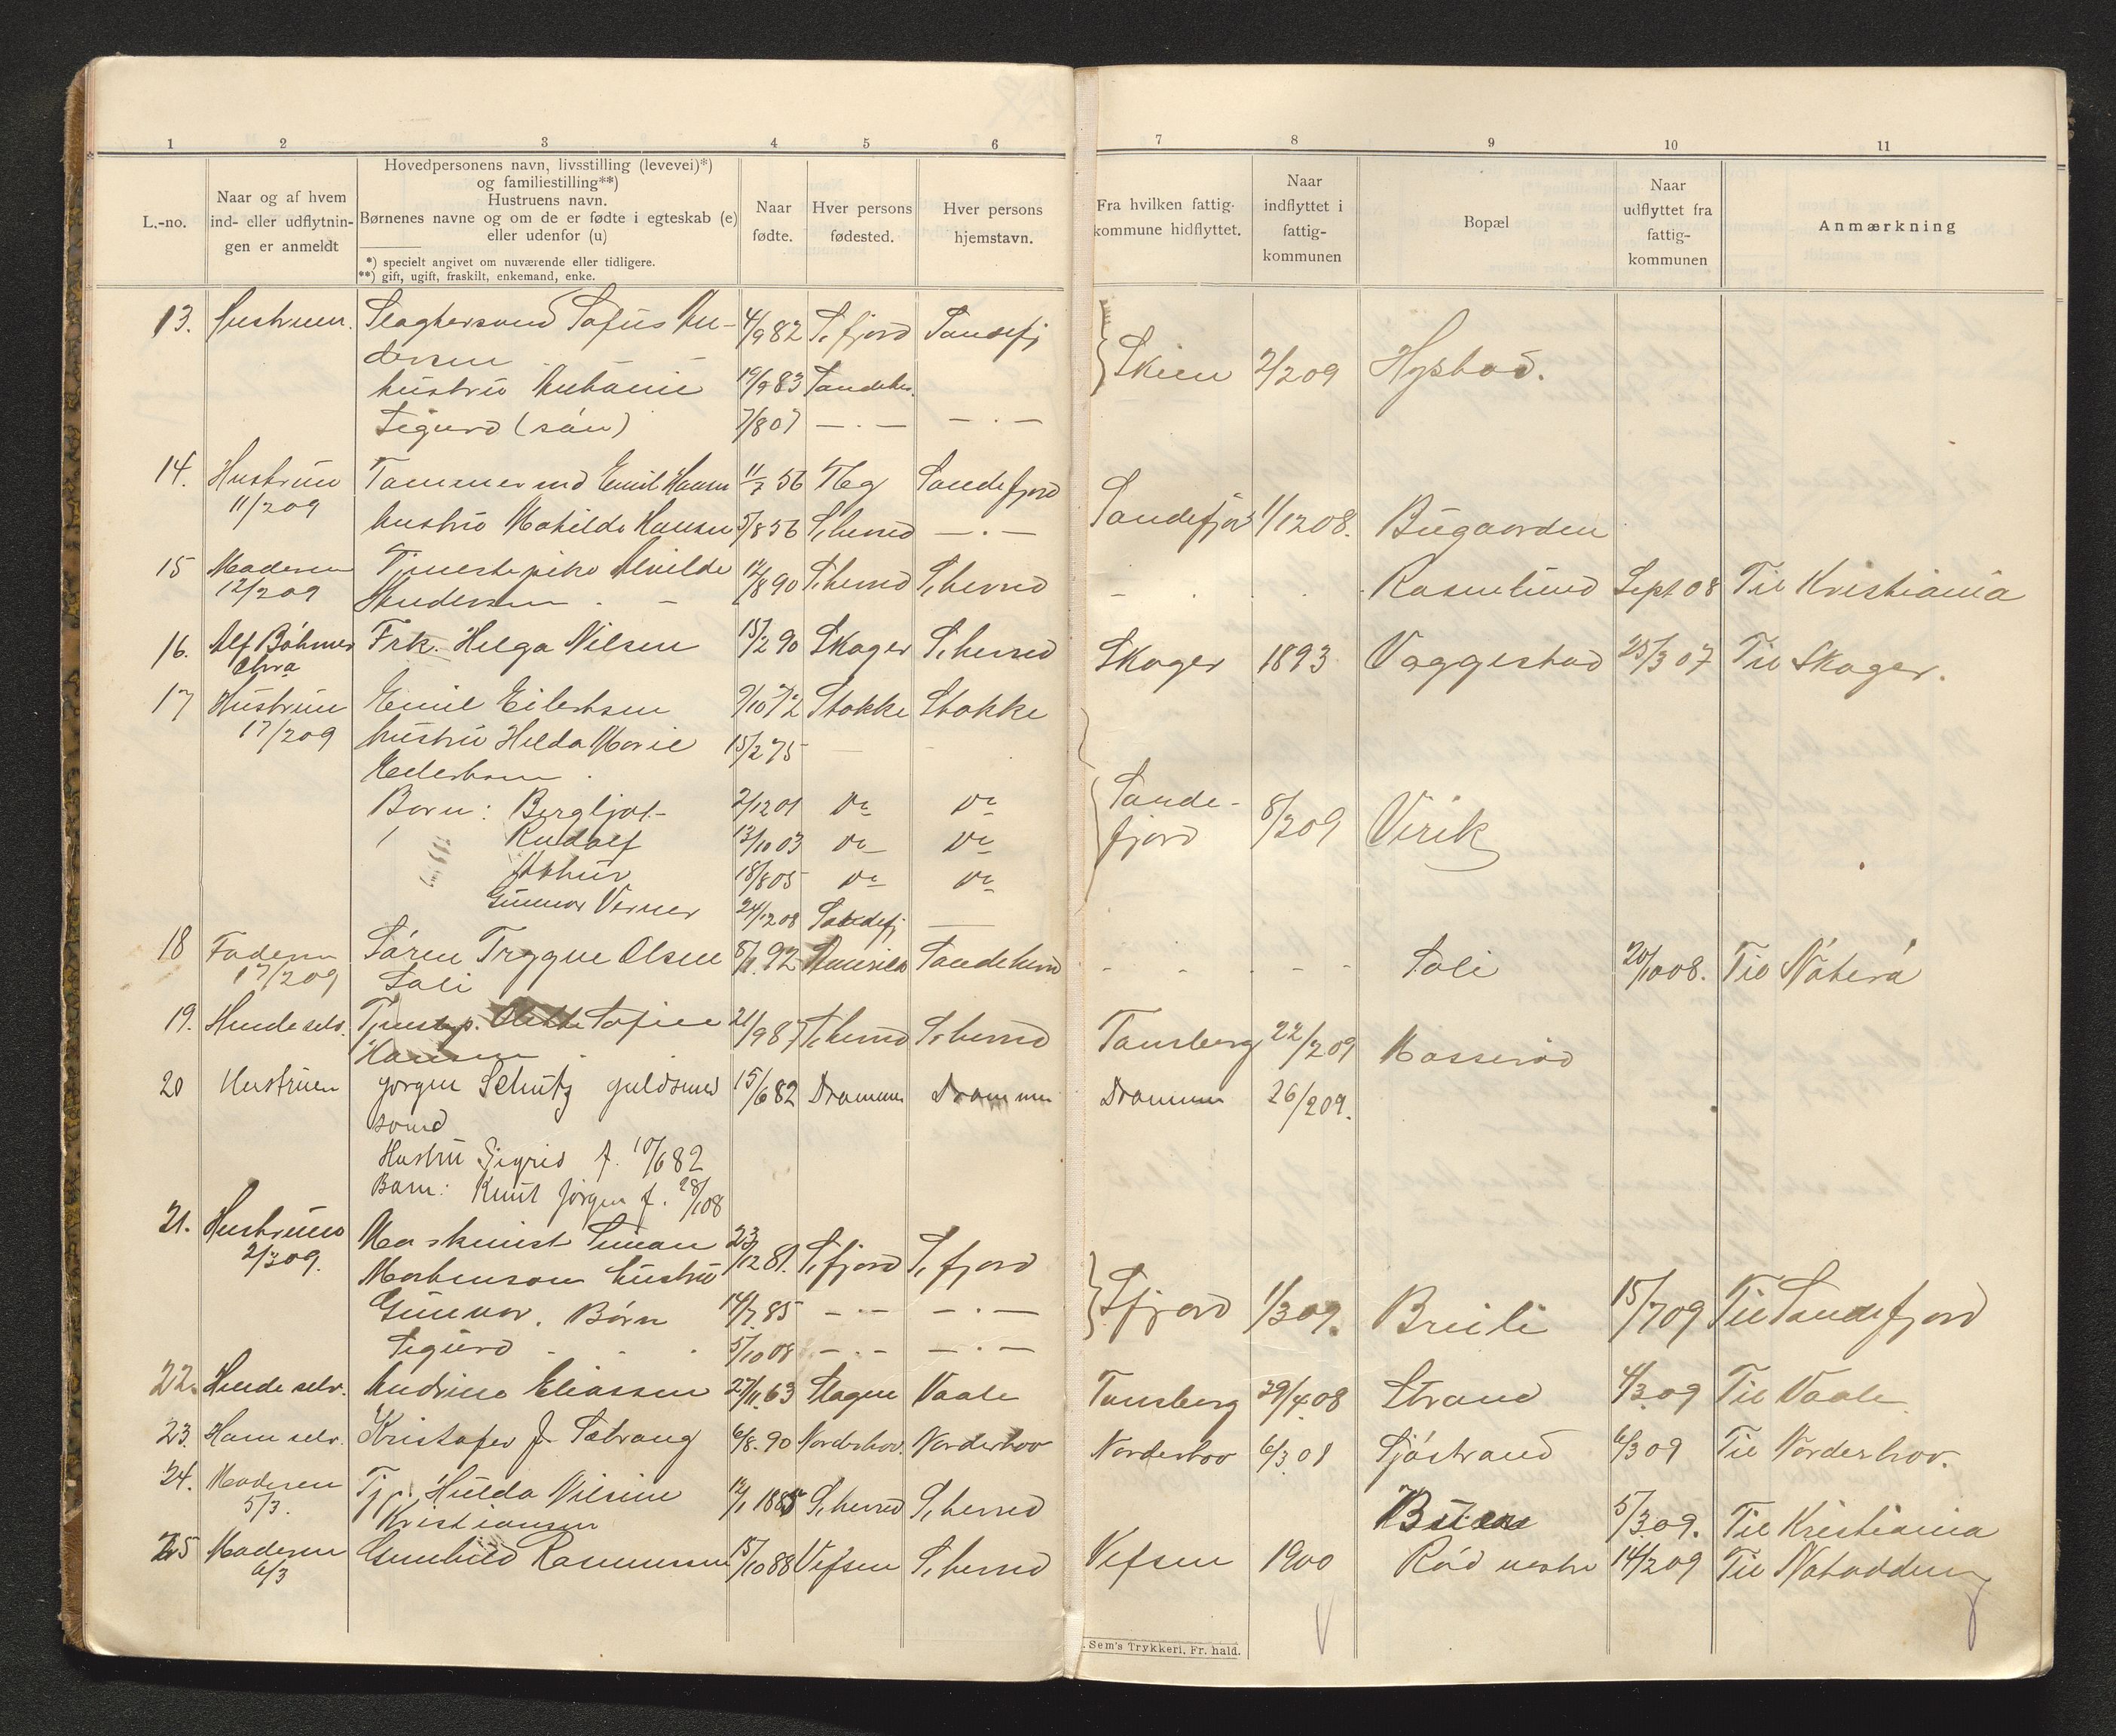 1 2 3 4 5 6 7 8 9 10 11
L.-no.
Naar og af hvem
ind- eller udflytnin-
gen er anmeldt
Hovedpersonens navn, livsstilling (levevei)*)
og familiestilling**)
Hustruens navn.
Børnenes navne og om de er fødte i egteskab (e)
eller udenfor (u)
*) specielt angivet om nuværende eller tidligere.
**) gift, ugift, fraskilt, enkemand, enke.
Naar
fødte.
Hver persons
fødested.
Hver persons
hjemstavn.
Fra hvilken fattig-
kommune hidflyttet.
Naar
indflyttet i
fattig-
kommunen
Bopæl
Naar
udflyttet fra
fattig-
kommunen
Anmærkning
13. Hustruen. Slagtersvend Sofus An- 4/9 82 S. fjord Sandefj
dersen
hustru Anhanie 19/9 83 Sandeher. Skien 2/2 09 Hystad.
Sigurd (sön) 7/8 07 — . — — . —
14. Hustruen Tømmermd Emil Hansen 11/7 56 Sandefjord
11/2 09 hustru Mathilde Hansen 5/8 56 S. herred — . — Sandefjord 1/12 08. Bugaarden
15 Moderen Tjenestepike Alvilde 12/8 90 S. herred S. herred Rosenlund Sept 08 Til Kristiania
12/2 09 Andersen
16. Alf Böhmer Frk. Helga Nilsen 15/2 90 Skoger S. herred Skoger 1893 Vaggestad 25/3 07 Til Skoger.
17 Hustruen Emil Eilertsen 9/10 72 Stokke Stokke
17/2 09 hustru Hilda Marie 15/2 75
Børn: Bergljot 2/12 01 Do Do Sande- 8/2 09 Virik
Rudolf 13/10 03 Do Do fjord
Arthur 18/8 05 Do Do
Gunnar Verner 24/12 08 Sandefj —
18 Faderen Sören Trygve Olsen 8/1. 92 Sandeherred Soli 20/10 08. Til Nöterö
17/2 09 Soli
19. Hende selv. Tjenestep. Sofie 21/9 87 S. herred S. herred Tønsberg 22/2 09 Mosserød
Hansen
20 Hustruen Jørgen Schutz guldsmed 15/6 82 Drammen Drammen Drammen 26/2 09.
svend
Hustru Sigrid f. 10/6 82
Barn: Knut Jørgen f. 28/1 08
21. Hustruen Maskinist Simon 23/12 81. S. fjord S. fjord
2/3 09. Mortenson hustru
Gunvor. Børn 14/7. 85 — . — — . — S fjord 1/3 09. Breili 15/7 09 Til Sandefjord
Sigurd 5/10 08 — . — — . —
22. Hende selv. Andrine Eliassen 27/11. 63 Slagen Vaale Tønsberg 29/4. 08 Strand 4/3. 09 Til Vaale
23. Ham selv. Kristofer J. Sætrang 6/8. 90 Norderhov. Norderhov Norderhov 6/3. 08 Sjöstrand 6/3 09 Til Norderhov.
24. Moderen Tj. Hulda Nilsine 12/1 1885 S. herred S. herred 5/3 09. Til Kristiania
5/3. Kristiansen
25 Moderen Gunhild Rasmussen 15/10 88 Vefsen S. herred Vefsen 1900 Röd nestre 14/2 09 Til Notodden
6/3
Sem's Trykkeri, Fr. hald.